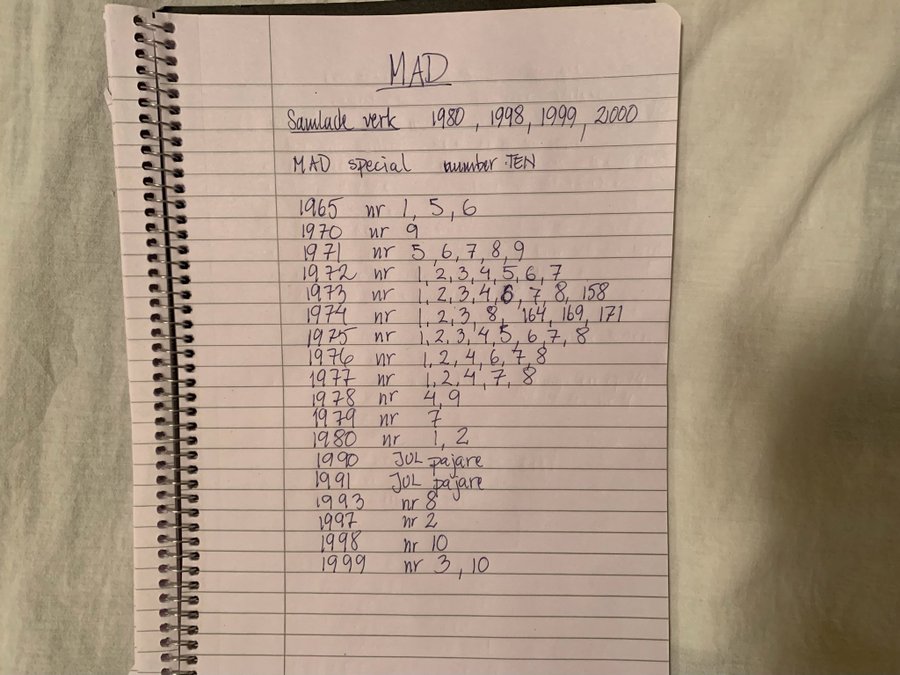 MAD
Samlade verk 1980, 1998, 1999, 2000
MAD special number TEN
1965 nr 1, 5, 6
1970 nr 9
1971 nr 5, 6, 7, 8, 9
1972 nr 1, 2, 3, 4, 5, 6, 7
1973 nr 1, 2, 3, 4, 6, 7, 8, 158
1974 nr 1, 2, 3, 8, 164, 169, 171
1975 nr 1, 2, 3, 4, 5, 6, 7, 8
1976 nr 1, 2, 4, 6, 7, 8
1977 nr 1, 2, 4, 7, 8
1978 nr 4, 9
1979 nr 7
1980 nr 1, 2
1990 JUL pajare
1991 JUL pajare
1993 nr 8
1997 nr 2
1998 nr 10
1999 nr 3, 10